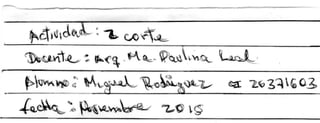 Actividad : 2 corte
Docente : Arq. Ma. Paulina Leal.
Alumno : Miguel Rodriguez CI 26371603
fecha : Noviembre 2015